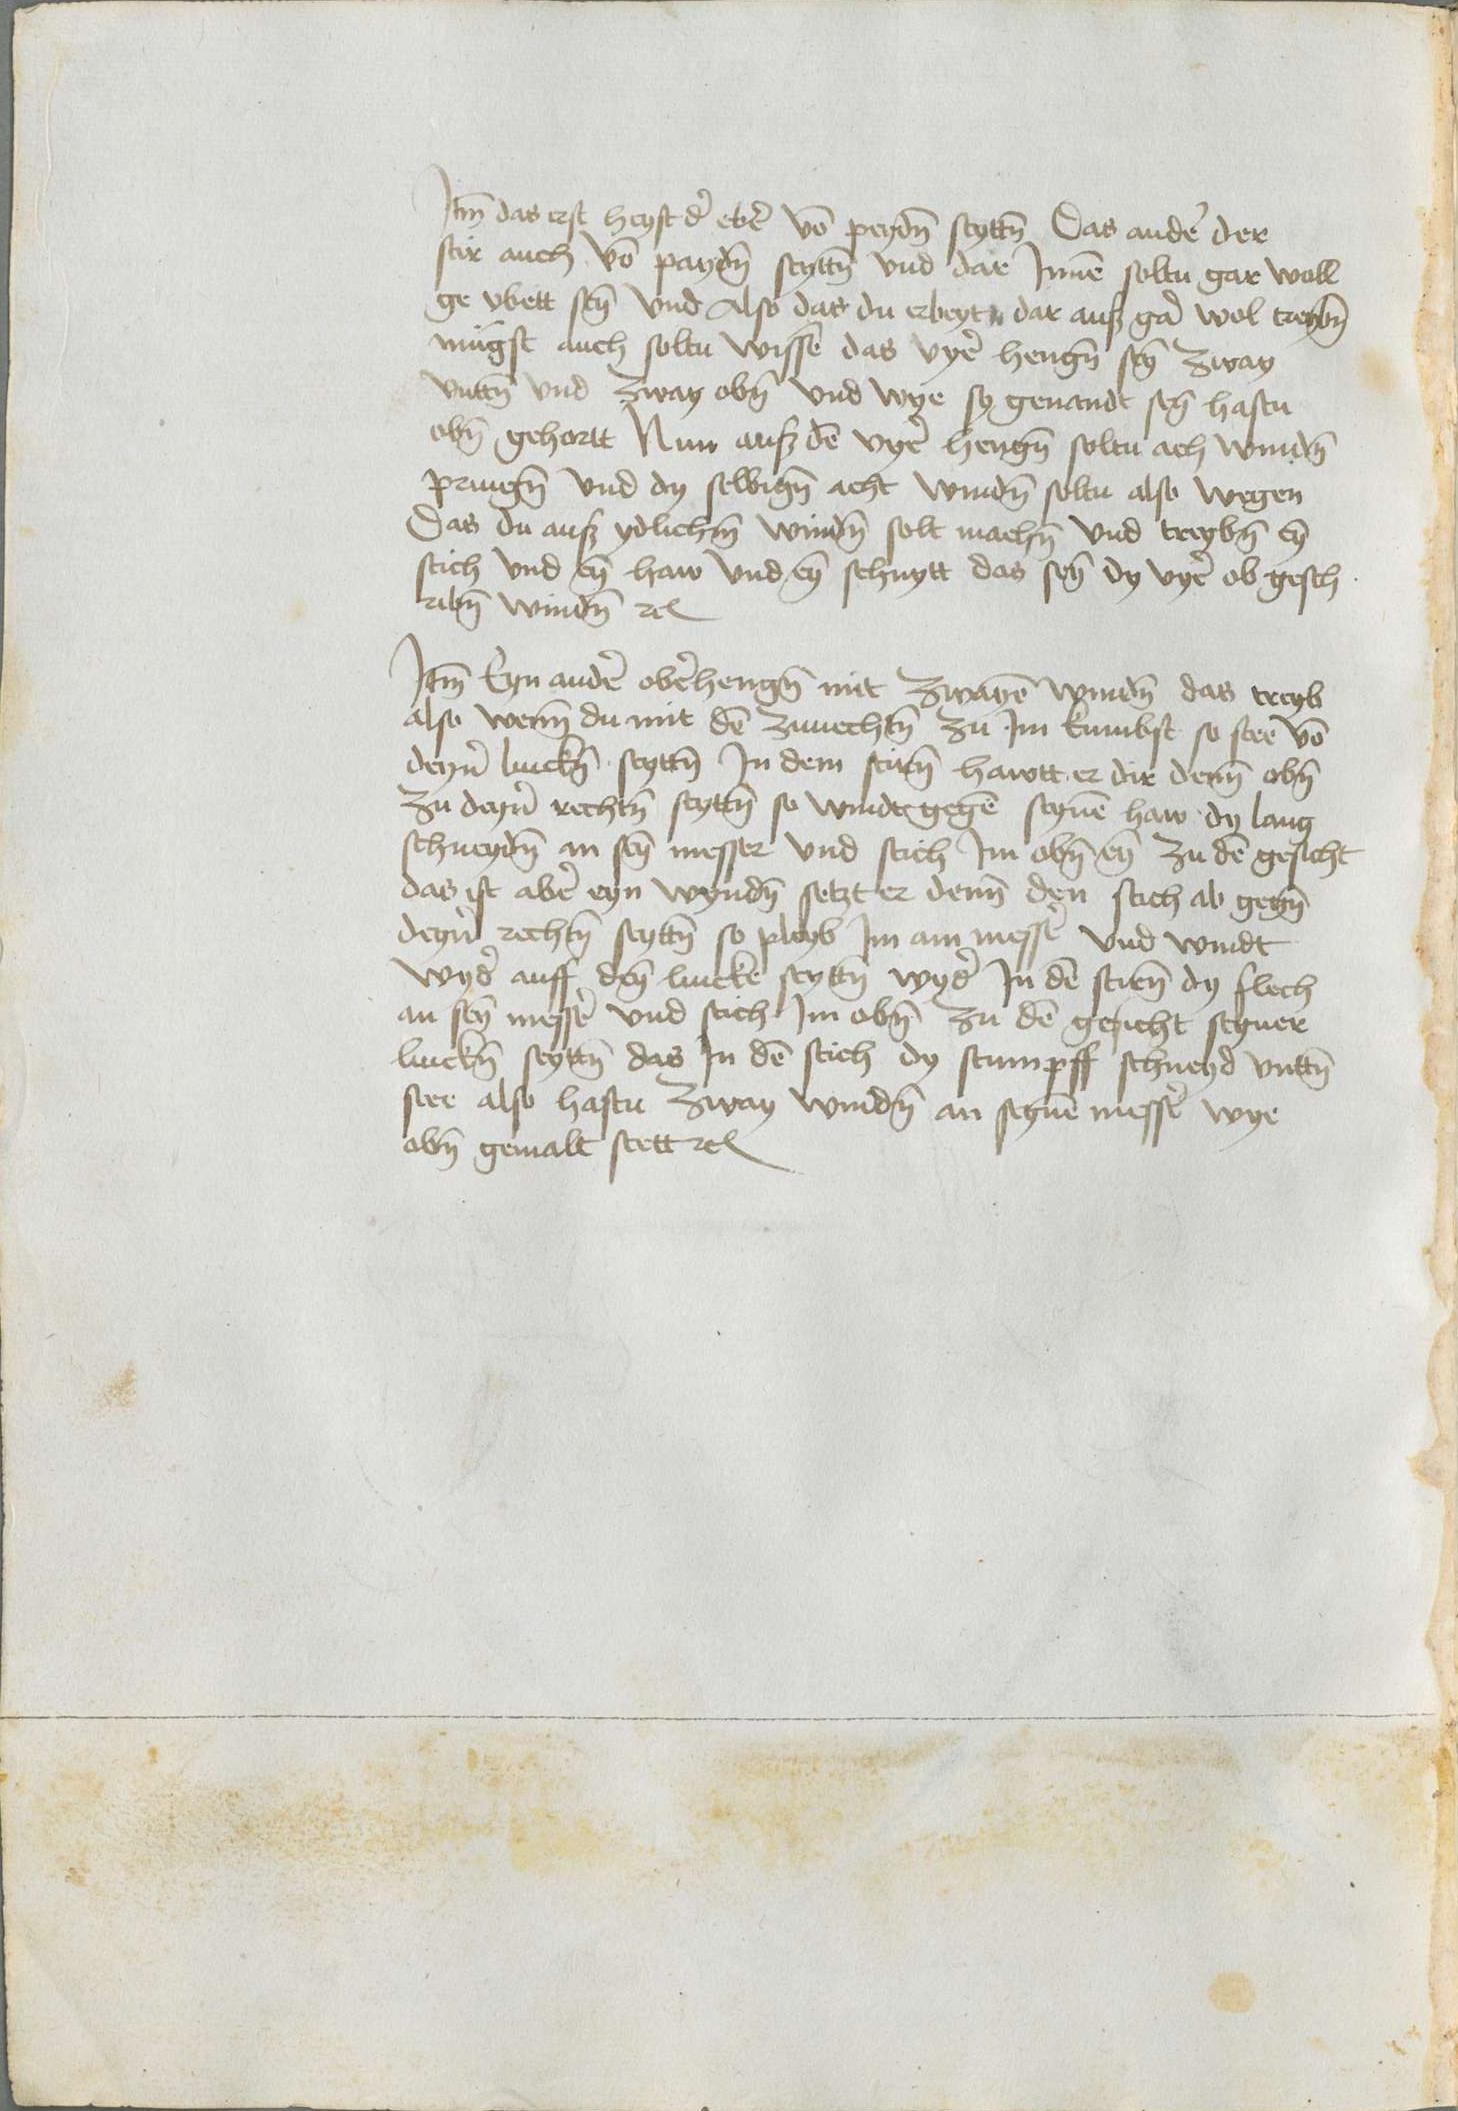 Itm̄ das erst heyst d' eb'er vō peydn̄ seyttn̄ Das ander' der
stir auch vō paydn̄ seyttn̄ vnd dar Jnnē soltu gar woll
ge vbett sey̅n vnd Also das du erbeyt dar auß gar wol treybn̄
mugst auch soltu wissē das vyer' hengn̄ sey̅n zway
vnttn̄ vnd zway obn̄ vnd wye sy genandt sey̅n hastu
obn̄ gehortt Nun auß dē vyer' hengn̄ soltu ach windn̄
pringn̄ vnd dy selbign̄ acht windn̄ soltu also wegen
Das du auß ydlichm̄ windn̄ solt machn̄ vnd treybn̄ ey̅n
stich vnd ey̅n haw vnd ey̅n schnytt das sey̅n dy vyer' ob gesch
ribn̄ windn̄ rc
Itm̄ Eyn ander' ober'hengn̄ mit zwayē windn̄ das treyb
also wenn̄ du mit dē zuuechtn̄ zu Jm kumbst so stee vō
deyn' linckn̄ seyttn̄ Jn dem stirn̄ hawtt er dir denn̄ obn̄
zu deyn' rechtn̄ seyttn̄ so windt gegē seynē haw dy lang
schneydn̄ an sey̅n messer vnd stich Jm obn̄ ey̅n zu dē gesicht
das ist aber' eyn wyndn̄ setzt er denn̄ den stich ab gegn̄
deyn' rechtn̄ seyttn̄ so pleyb Jm am messer' vnd windt
wyd' auff dey̅n linckē seyttn̄ wyd' Jn dē stirn̄ dy flech
an sey̅n messer' vnd stich Jm obn̄ zu dē gesicht seyner
linckn̄ seyttn̄ das Jn dē stich dy stumpff schneyd vnttn̄
stee also hastu zway windn̄ an seynē messer' wye
obn̄ gemalt stett rc